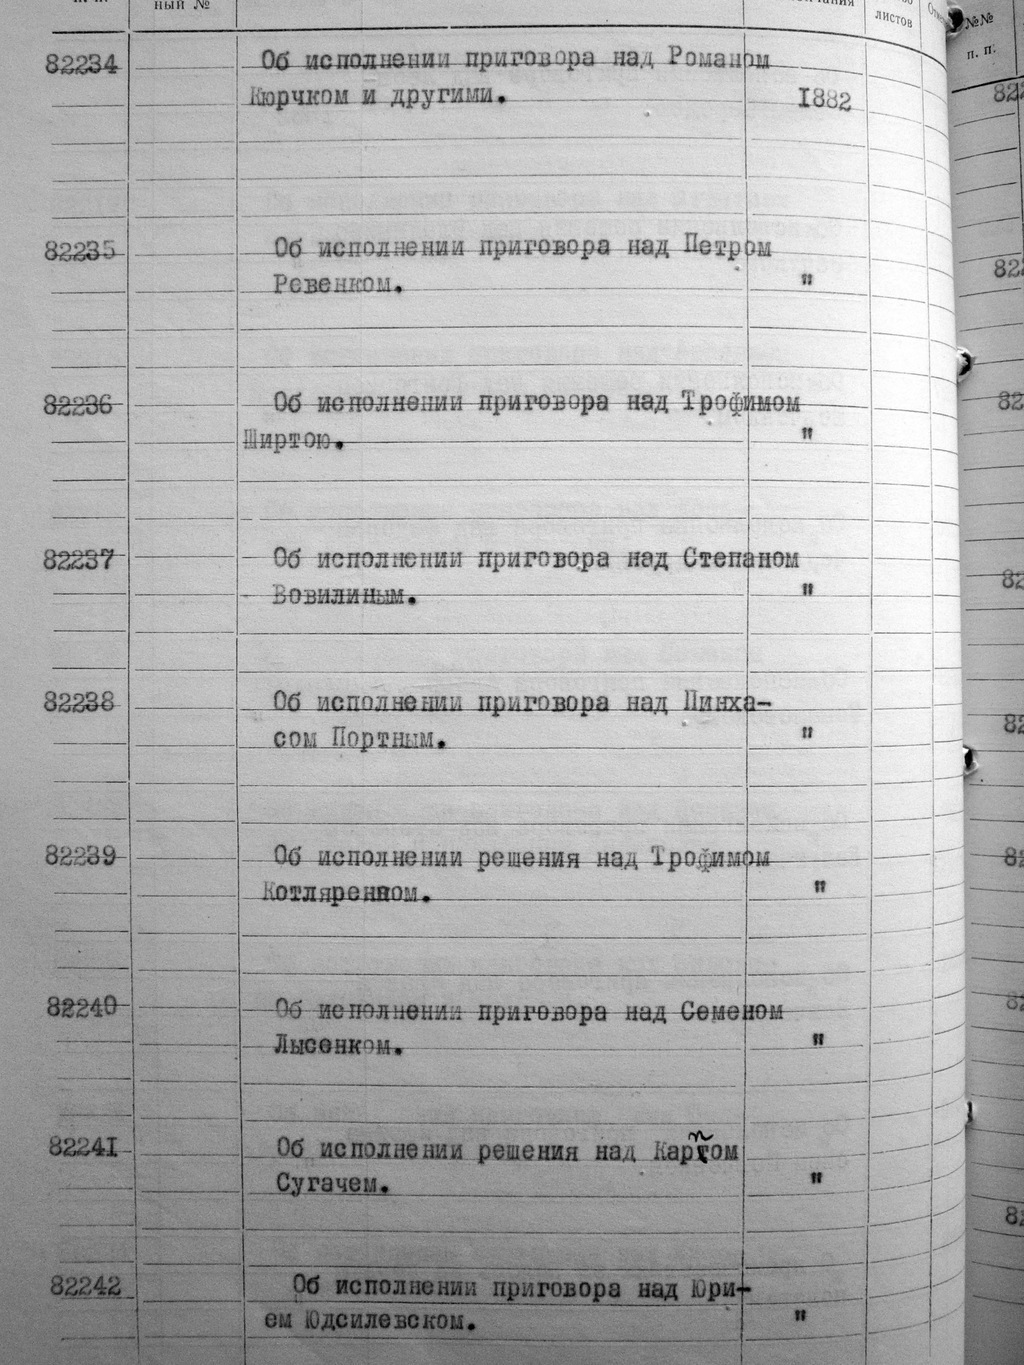 ный №
листов
№№
п. п.
82234 Об исполнении приговора над Романом
Кюрчком и другими. 1882
82235 Об исполнении приговора над Петром
Ревенком. "
82236 Об исполнении приговора над Трофимом
Ширтою. "
82237 Об исполнении приговора над Степаном
Вовилиным. "
82238 Об исполнении приговора над Пинха-
сом Портным. "
82239 Об исполнении решения над Трофимом
Котляренком. "
82240 Об исполнении приговора над Семеном
Лысенком. "
82241 Об исполнении решения над Карпом
Сугачем. "
82242 Об исполнении приговора над Юри-
ем Юдсилевском. "